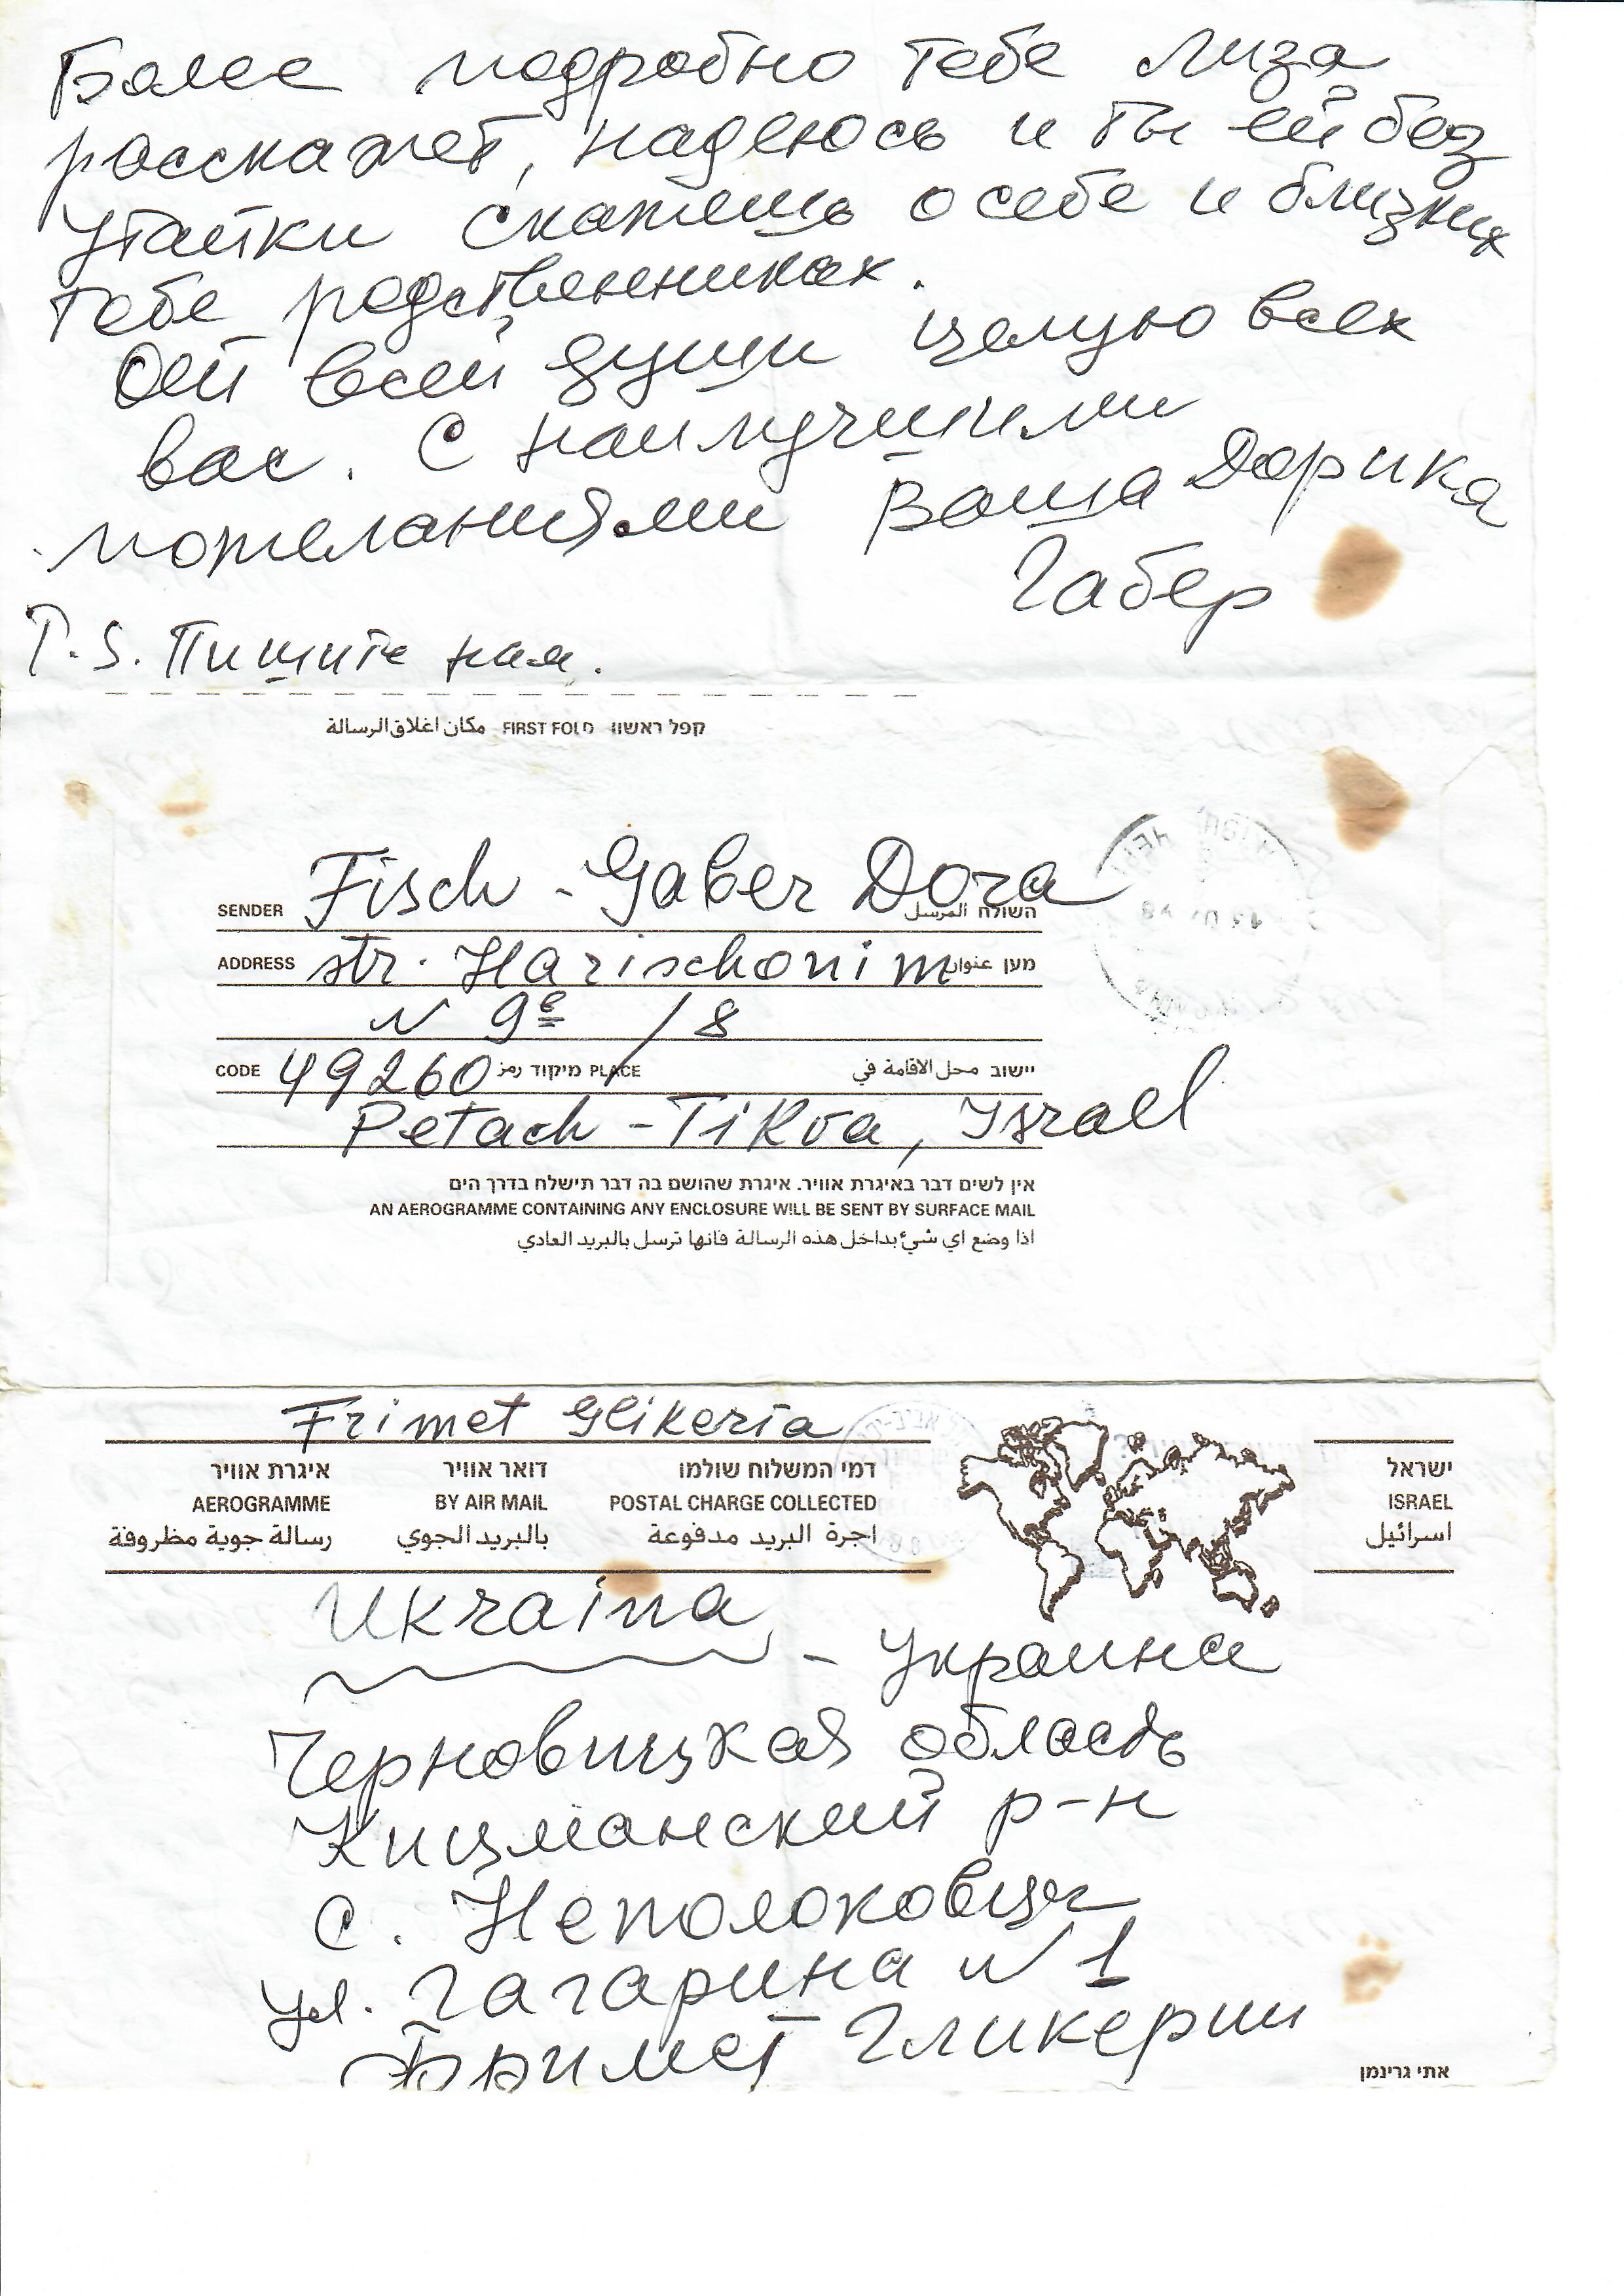 Более подробно тебе Лиза
расскажет, надеюсь и ты ей без
утайки скажешь о себе и близких
тебе родственниках.
От всей души целую всех
вас. С наилучшими
пожеланиями Ваша Дорика
Габер
P.S. Пишите нам.
קפל ראשון FIRST FOLD مكان اغلاق الرسالة
SENDER Fisch - Gaber Dora השולח المرسل
ADDRESS str. Harischonim מען عنوان
N 9e / 8
CODE 49260 מיקוד رمز PLACE יישוב محل الاقامة في
Petach - Tikva, Israel
אין לשים דבר באיגרת אוויר. איגרת שהושם בה דבר תישלח בדרך הים
AN AEROGRAMME CONTAINING ANY ENCLOSURE WILL BE SENT BY SURFACE MAIL
اذا وضع اي شيء بداخل هذه الرسالة فانها ترسل بالبريد العادي
Frimet Glikeria
איגרת אוויר דואר אוויר דמי המשלוח שולמו ישראל
AEROGRAMME BY AIR MAIL POSTAL CHARGE COLLECTED ISRAEL
رسالة جوية مظروفة بالبريد الجوي اجرة البريد مدفوعة اسرائيل
Ukraina - Украина
Черновицкая область
Кицманский р-н
с. Неполоковцы
ул. Гагарина N 1
Фримет Гликерии
אתי גרינמן